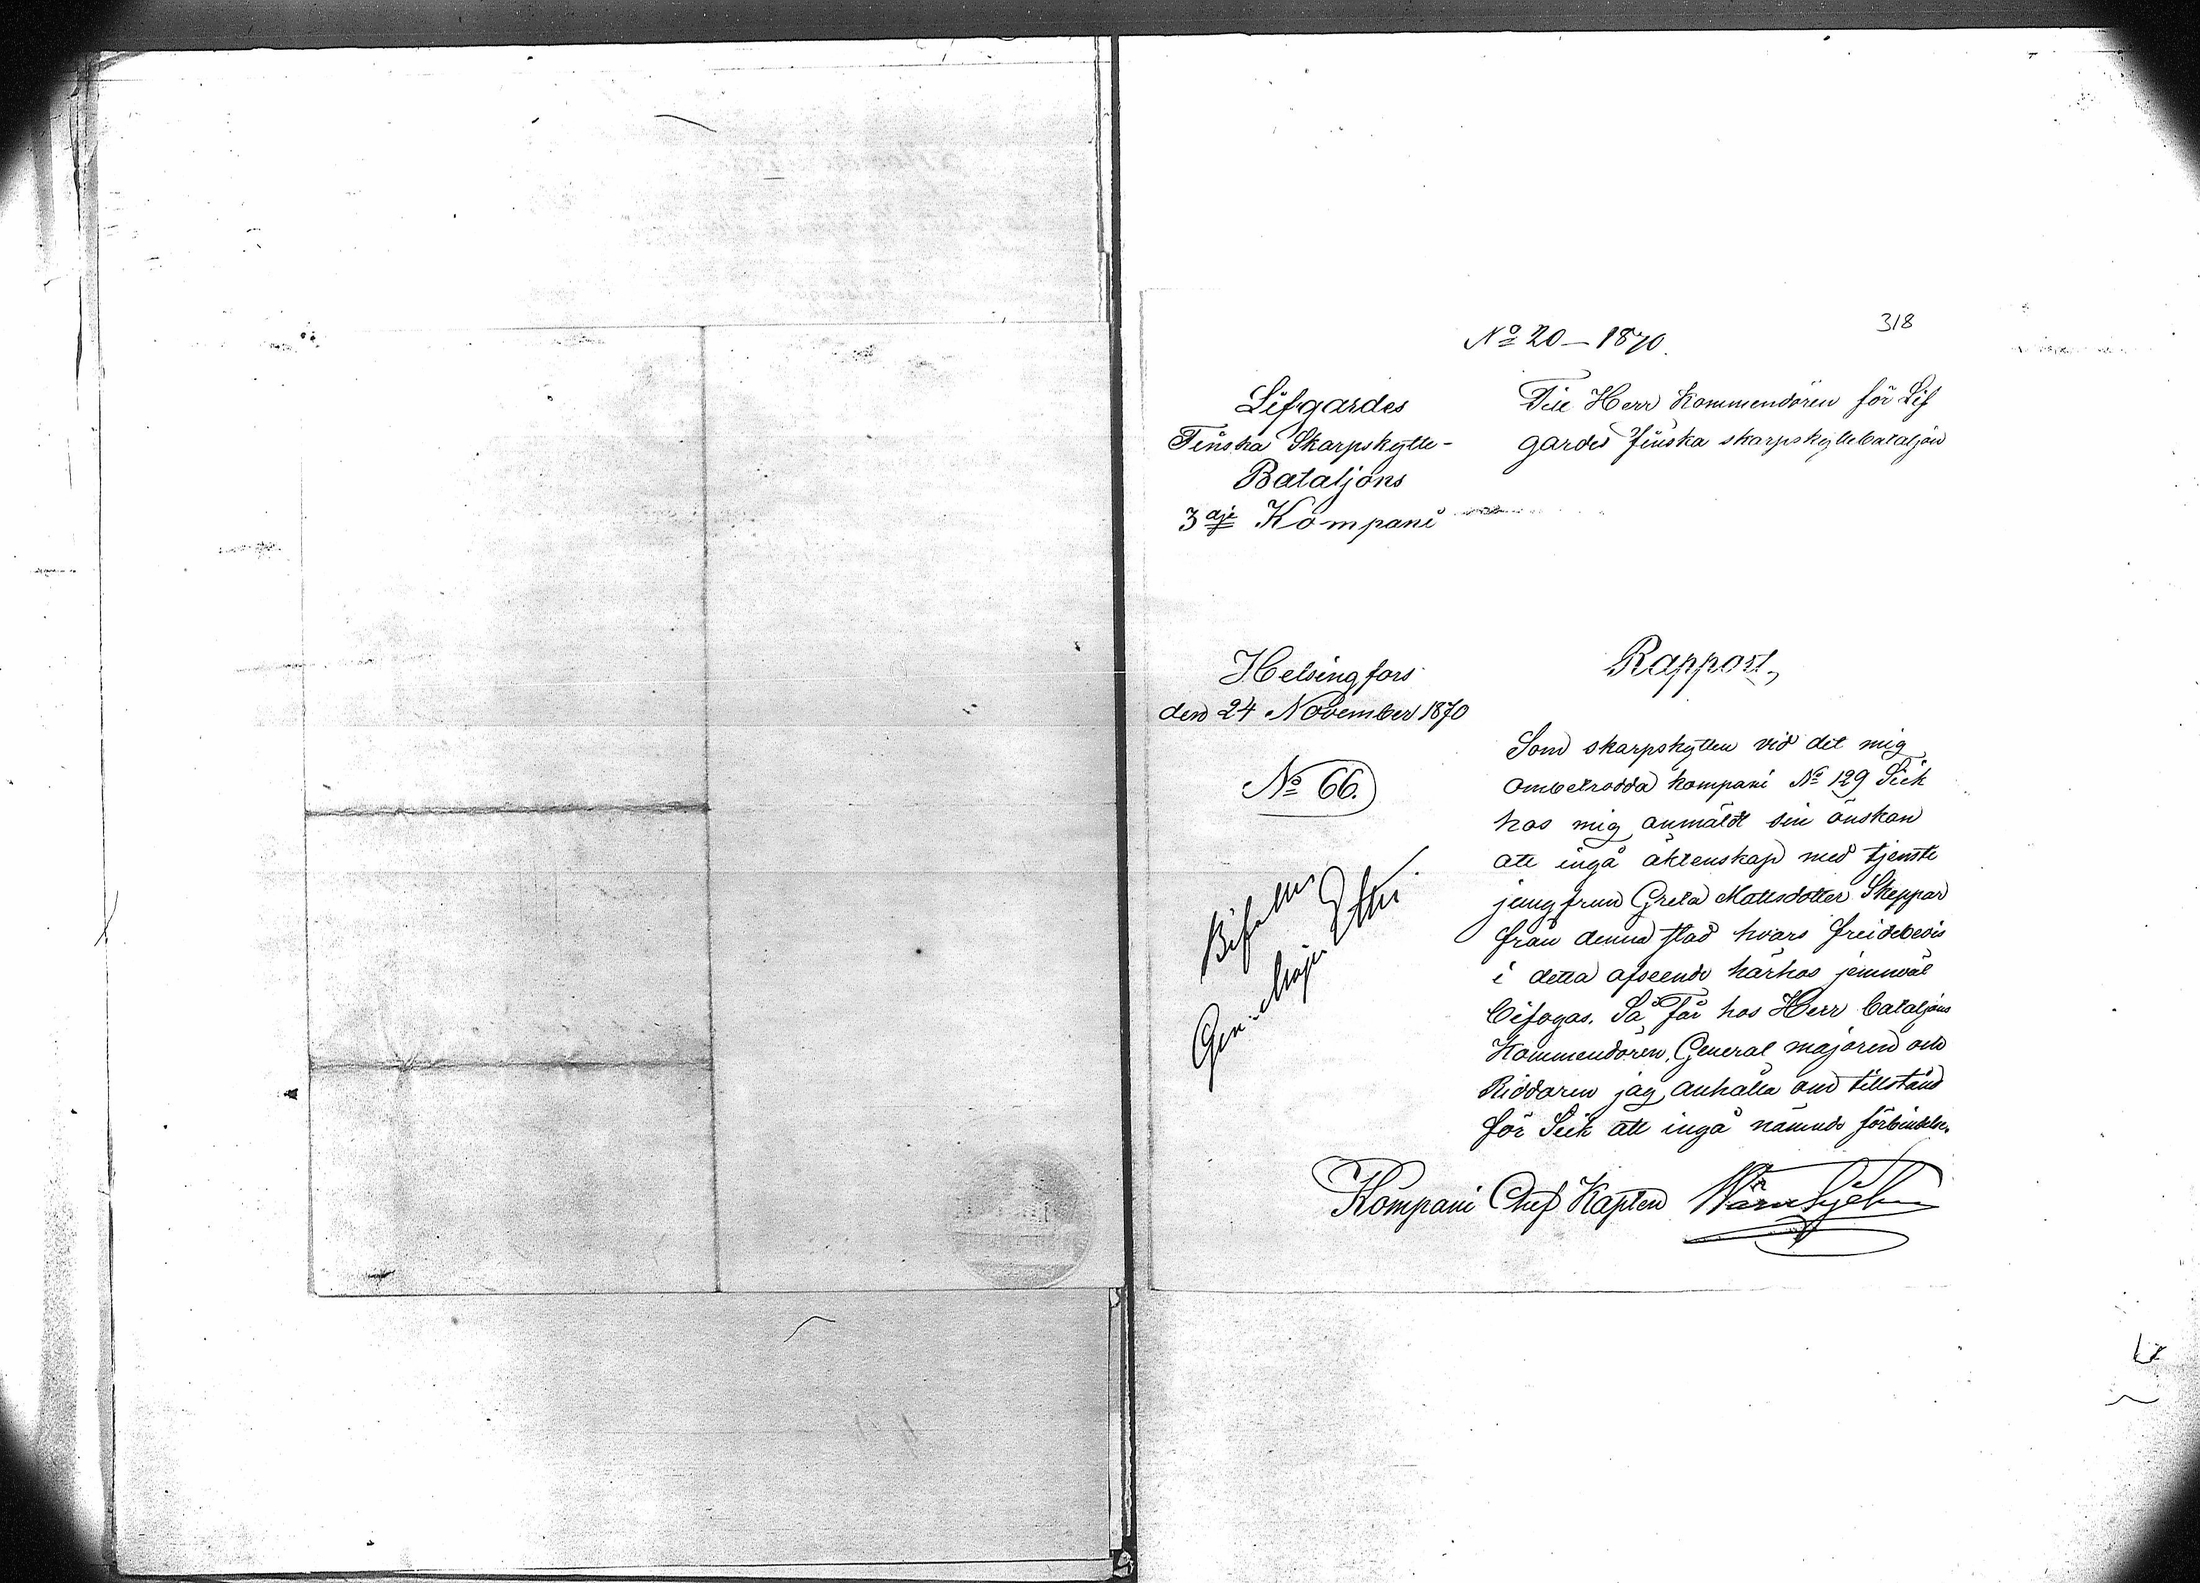 318
No 20 – 1870.
Lifgardes
Finska Skarpskytte-
Bataljons
3dje Kompani
Till Herr Kommendören för Lif
gardes finska skarpskyttebataljon
Helsingfors
den 24 November 1870
No 66.
Bifalles
Gen: Major
Rapport,
Som skarpskytten vid det mig
ombetrodda kompani No 129 Siek
hos mig anmäldt sin önskan
att ingå äktenskap med tjenste
jungfrun Greta Mattsdotter Skeppar
från denna stad hvars freidebevis
i detta afseende härhos jemnväl
bifogas. Så får hos Herr bataljons
Kommendören, General majoren och
Riddaren jag anhålla om tillstånd
för Siek att ingå nämnde förbindelse.
Kompani Chef Kapten